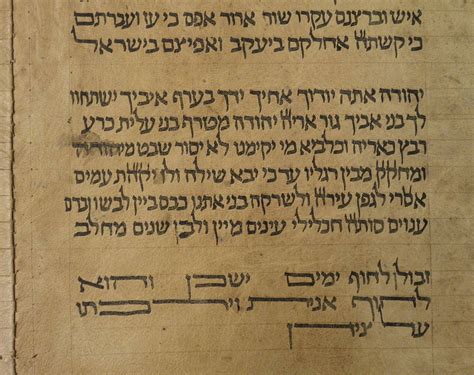 איש וברצנם עקרו שור ארור אפם כי עז ועברתם
כי קשתה אחלקם ביעקב ואפיצם בישראל
יהודה אתה יודוך אחיך ידך בערף איביך ישתחוו
לך בני אביך גור אריה יהודה מטרף בני עלית כרע
רבץ כאריה וכלביא מי יקימנו לא יסור שבט מיהודה
ומחקק מבין רגליו עד כי יבא שילה ולו יקהת עמים
אסרי לגפן עירה ולשרקה בני אתנו כבס ביין לבשו ובדם
ענבים סותה חכלילי עינים מיין ולבן שנים מחלב
זבולן לחוף ימים ישכן והוא
לחוף אנית וירכתו
על צידן